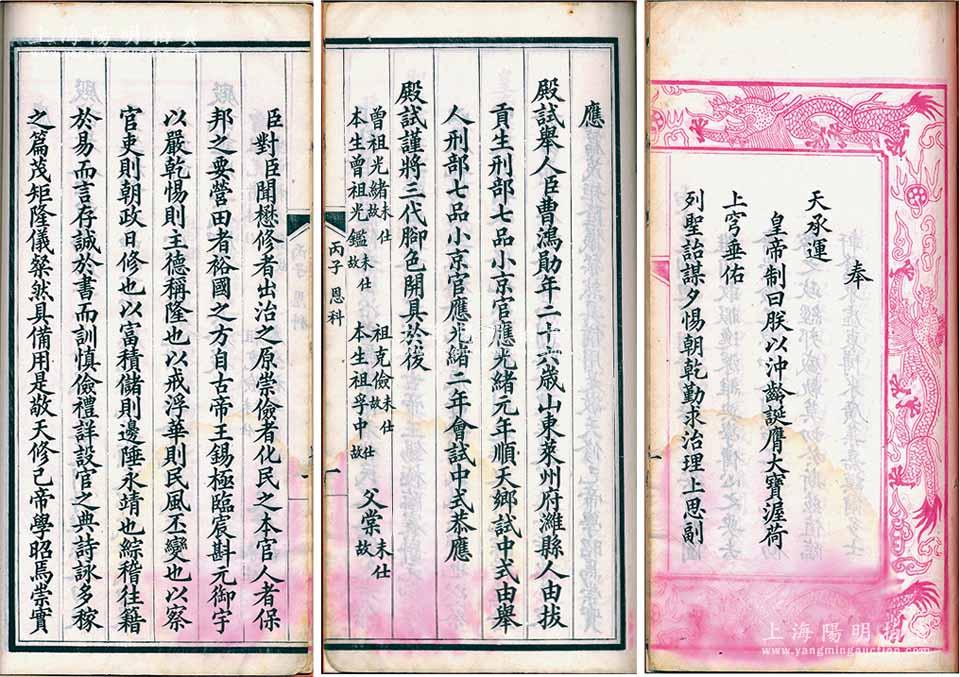 奉
天承運
皇帝制曰朕以沖齡誕膺大寶渥荷
上穹垂佑
列聖詒謀夕惕朝乾勤求治理上思副
應
殿試舉人臣曹鴻勛年二十六歲山東萊州府濰縣人由拔
貢生刑部七品小京官應光緒元年順天鄉試中式由舉
人刑部七品小京官應光緒二年會試中式恭應
殿試謹將三代腳色開具於後
曾祖光緒未仕故 祖克儉未仕故 父棠未仕故
本生曾祖光鑑未仕故 本生祖孚中仕故
丙子 恩科
一
臣對臣聞懋修者出治之原崇儉者化民之本官人者保
邦之要營田者裕國之方自古帝王錫極臨宸斟元御宇
以嚴乾惕則主德稱隆也以戒浮華則民風丕變也以察
官吏則朝政日修也以富積儲則邊陲永靖也綜稽往籍
於易而言存誠於書而訓慎儉禮詳設官之典詩詠多稼
之篇茂矩隆儀粲然具備用是敬天修己帝學昭焉崇實
上海陽明拍賣
上海陽明拍賣
www.yangmingauction.com